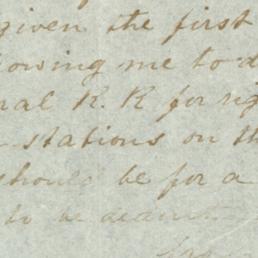 given the first
owing me to d
ral R. R for rig
stations on th
should be for a
to be